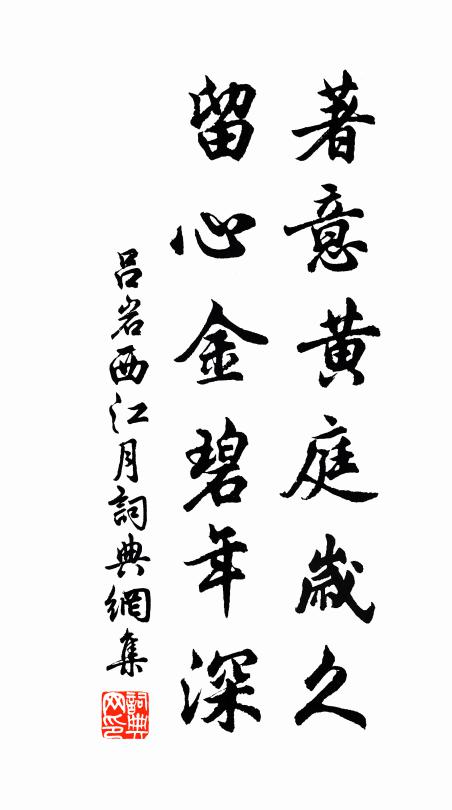 著意黃庭歲久
留心金碧年深
呂岩西江月詞典網集
詞典網印